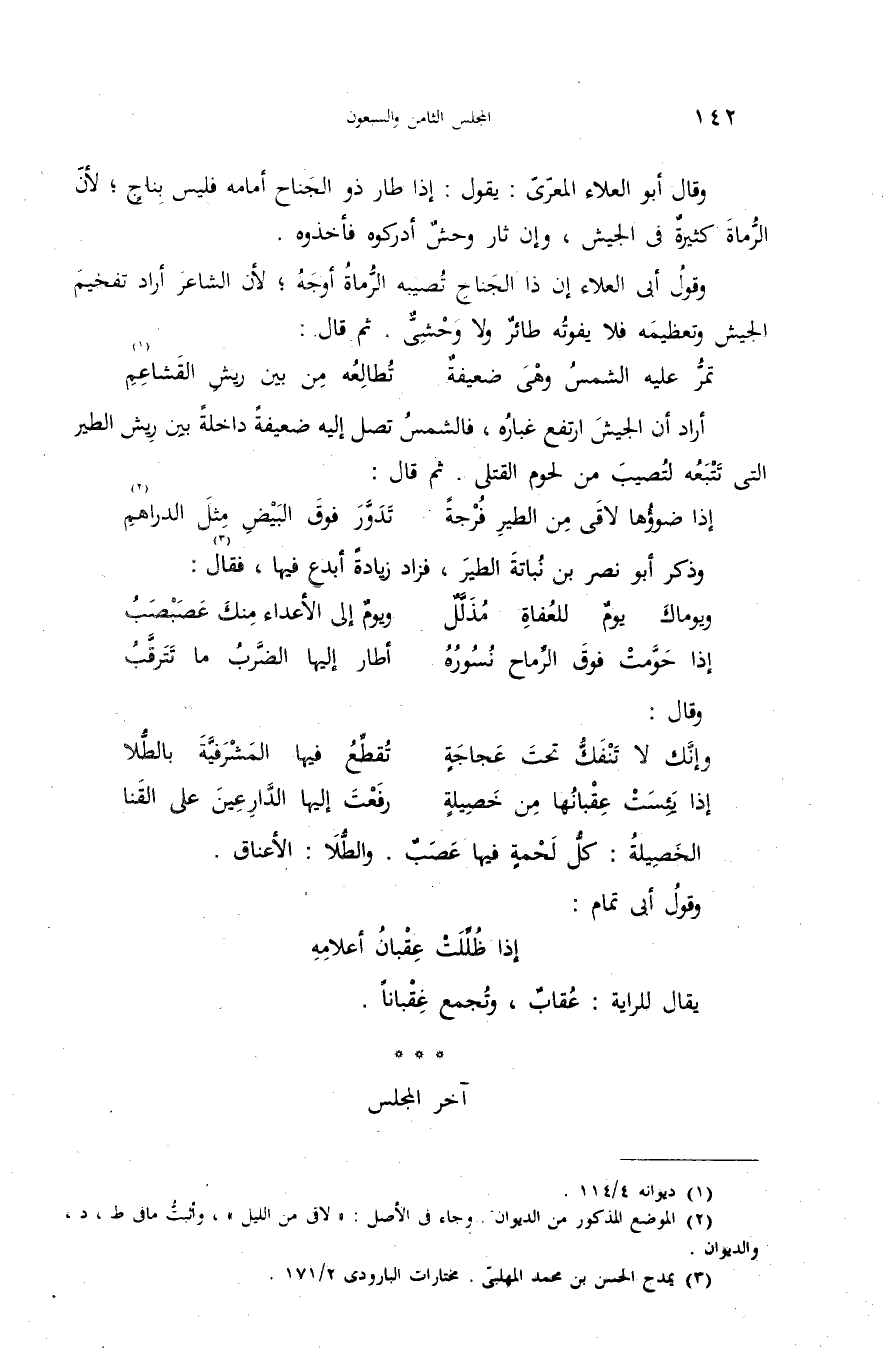 ١٤٢ المجلس الثامن والسبعون
وقال أبو العلاء المعرّىّ : يقول : إذا طار ذو الجَناح أمامه فليس بِناجٍ ؛ لأنّ
الرُّماةَ كثيرةٌ فى الجيش ، وإن ثار وحشٌ أدركوه فأخذوه .
وقولُ أبى العلاء إن ذا الجَناحِ تُصيبه الرُّماةُ أوجَهُ ؛ لأن الشاعرَ أراد تفخيمَ
الجيش وتعظيمَه فلا يفوتُه طائرٌ ولا وَحْشىٌّ . ثم قال :
تمرُّ عليه الشمسُ وهْىَ ضعيفةٌ تُطالِعُه مِن بين ريشِ القَشاعِمِ (١)
أراد أن الجيشَ ارتفع غبارُه ، فالشمسُ تصل إليه ضعيفةً داخلةً بين رِيش الطير
التى تَتْبَعُه لتُصيبَ من لحوم القتلى . ثم قال :
إذا ضوؤُها لاقَى مِن الطيرِ فُرْجةً تَدَوَّرَ فوقَ البَيْضِ مِثلَ الدراهمِ (٢)
وذكر أبو نصر بن نُباتةَ الطيرَ ، فزاد زيادةً أبدع فيها ، فقال (٣) :
ويوماكَ يومٌ للعُفاةِ مُذَلَّلٌ ويومٌ إلى الأعداء مِنكَ عَصَبْصَبُ
إذا حَوَّمتْ فوقَ الرِّماحِ نُسُورُهُ أطار إليها الضَّربُ ما تَتَرقَّبُ
وقال :
وإنَّك لا تَنْفَكُّ تحتَ عَجاجَةٍ تُقطِّعُ فيها المَشْرَفيَّةَ بالطُّلا
إذا يَئِسَتْ عِقْبانُها مِن خَصِيلةٍ رفَعْتَ إليها الدَّارعِينَ على القَنا
الخَصِيلةُ : كلُّ لَحْمةٍ فيها عَصَبٌ . والطُّلَا : الأعناق .
وقولُ أبى تمام :
إذا ظُلِّلَتْ عِقْبانُ أعلامِهِ
يقال للراية : عُقابٌ ، وتُجمع عِقْباناً .
* * *
آخر المجلس
(١) ديوانه ١١٤/٤ .
(٢) الموضع المذكور من الديوان . وجاء فى الأصل : « لاقى من الليل » ، وأثبتُّ مافى ط ، د ،
والديوان .
(٣) يمدح الحسن بن محمد المهلبىّ . مختارات البارودى ١٧١/٢ .